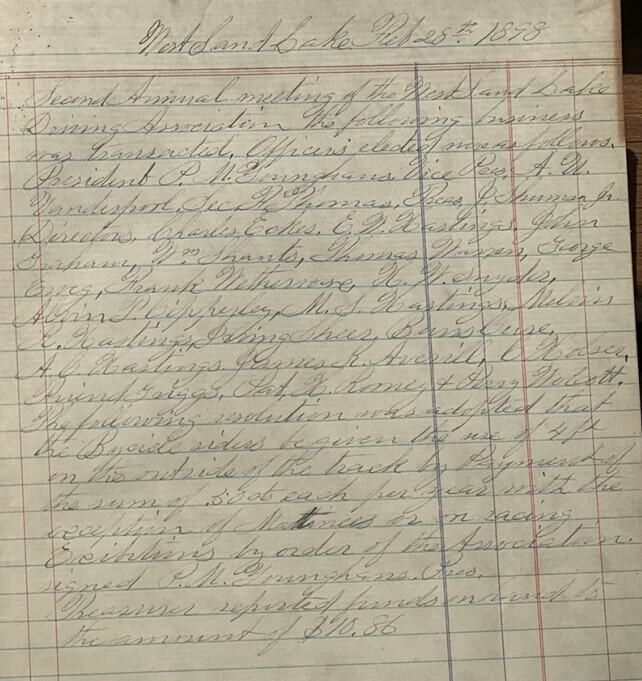 West Sand Lake Feb 28th 1898
Second Annual meeting of the West Sand Lake
Driving Association the following business
was transacted. Officers elected was as follows.
President P. M. Younghans. Vice Pres, A. W.
Vanderpool, Sec F. Thomas, Treas, J. Thuman Jr.
Directors, Charles Eckes. E. W. Hastings, John
Graham, Wm Shants, Thomas Warren, George
Ewig, Frank Wetherwax, H. W. Snyder,
Albin P. Cipperley, M. S. Hastings, Melvin
H. Hastings, Irving Sheer, Barns
A. C. Hastings. James K. Averill, C
Friend Griggs, Pat, H. Roney & Perry Wolcott.
The following resolution was adopted that
the Bycicle riders be given the use of 4 ft
on the outside of the track by Payment of
the sum of .50cts each per year with the
exception of Mattinees or on racing
Exibitions by order of the Association.
signed P. M. Younghans. Pres.
Treasurer reported funds on hand to
the amount of $10.86